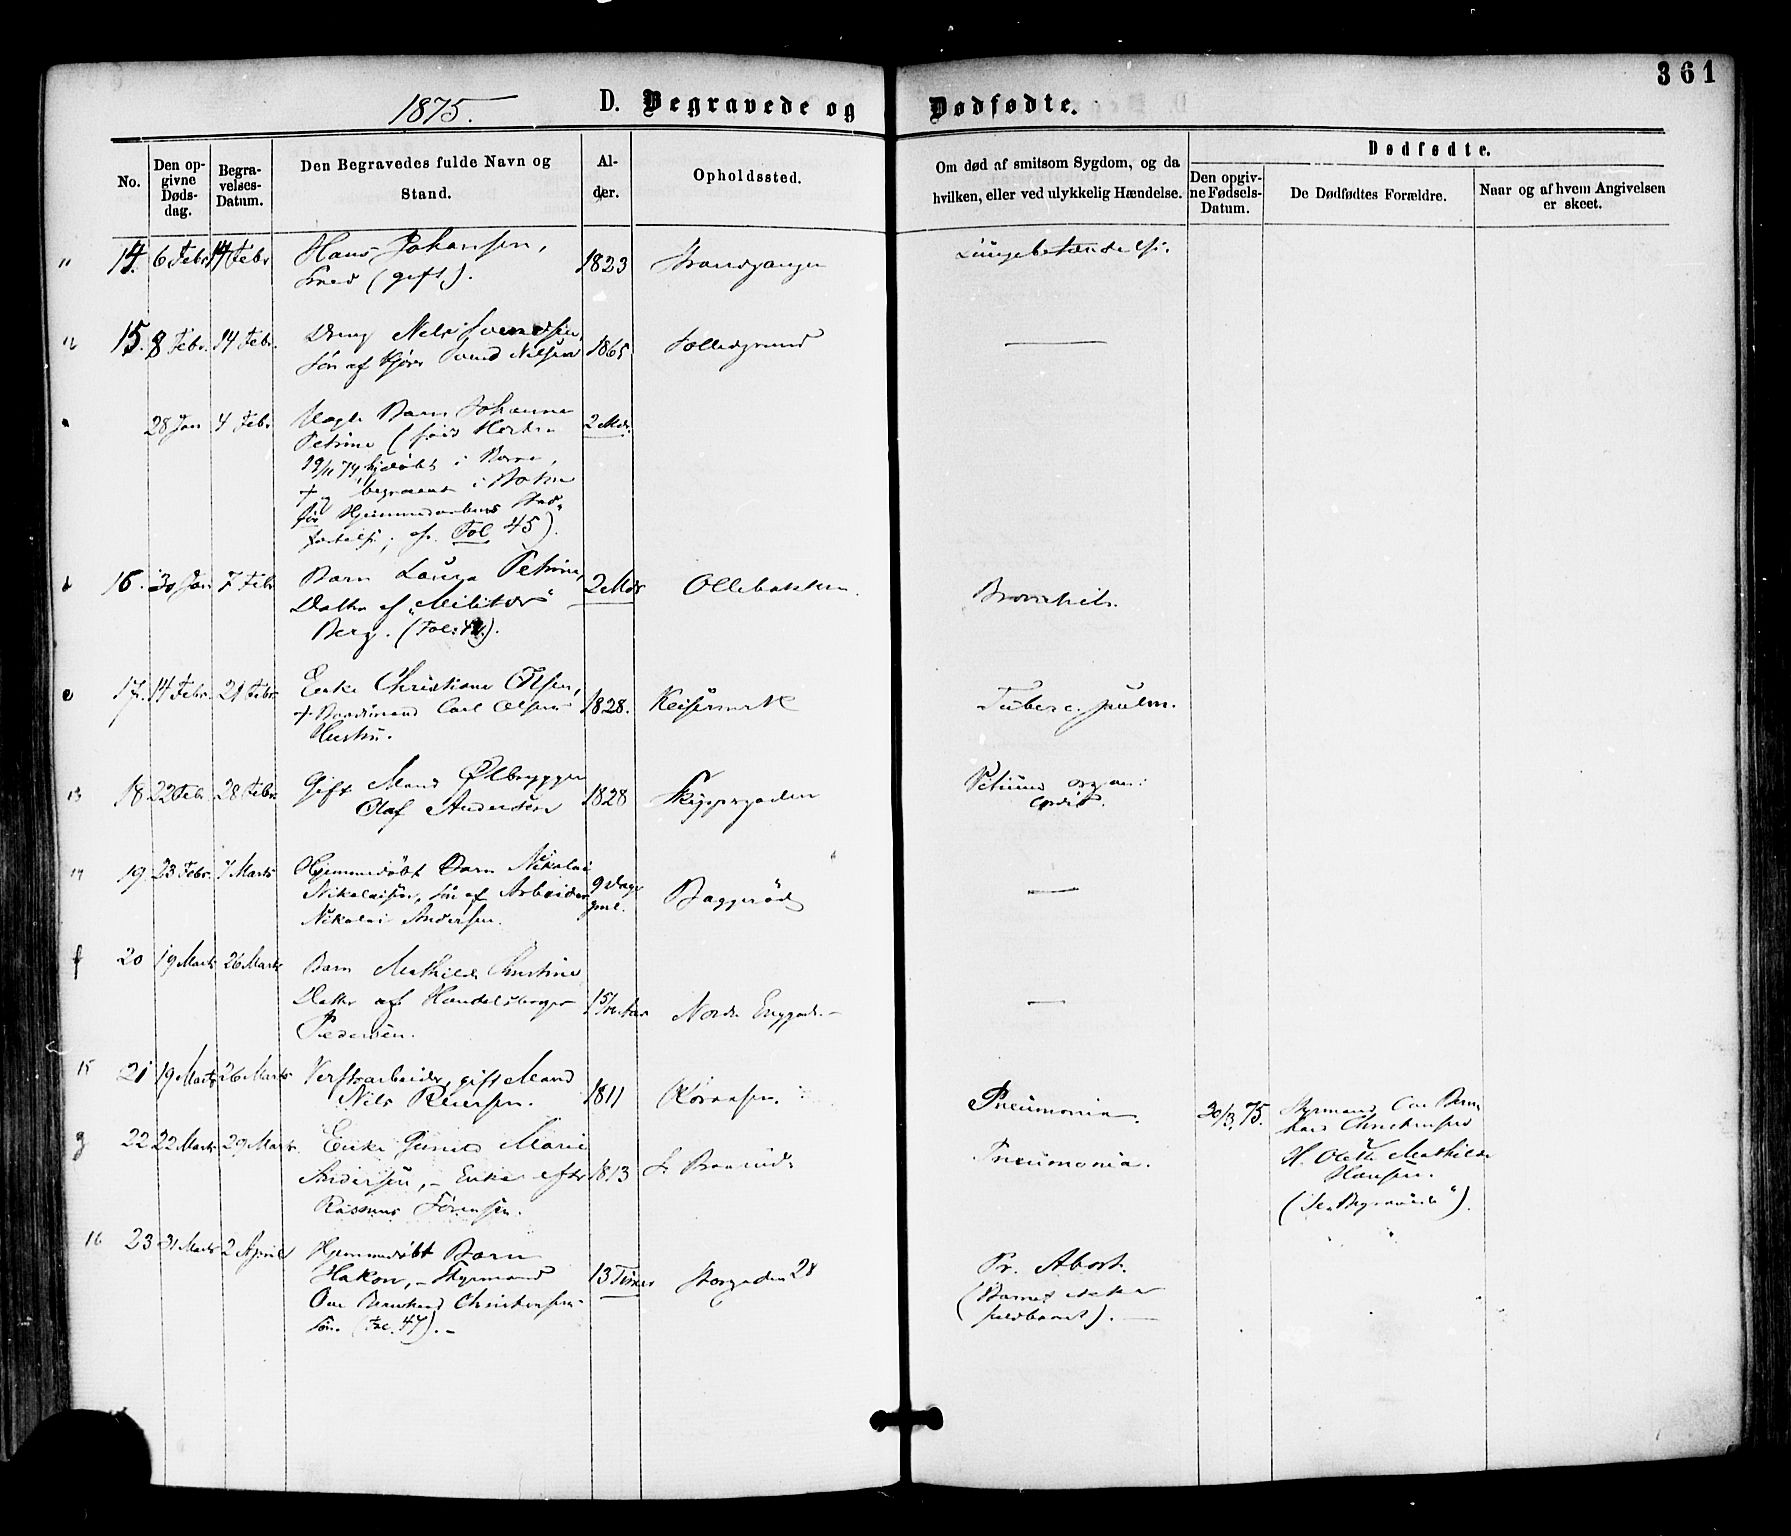 361
1875.
D. Begravede og Dødfødte.
No.
Den opgivne Dødsdag.
Begravelses-Datum.
Den Begravedes fulde Navn og Stand.
Alder.
Opholdssted.
Om død af smitsom Sygdom, og da hvilken, eller ved ulykkelig Hændelse.
Dødfødte.
Den opgivne Fødsels-Datum.
De Dødfødtes Forældre.
Naar og af hvem Angivelsen er skeet.
11 14. 6 Febr 14 Febr Hans Johansen, 1823 Lungebetændelse.
Smed (gift).
12 15. 8 Febr. 14 Febr. Dreng Nels Svendsen, 1865 —
Søn af Svend Nilsen
28 Jan 4 Febr Barn Johanne 2 Mdr.
Petrine (født Horten
19/11 74, hjdøbt i Borre,
† og begravet i Botne
før Hjemmedaabens Stad-
fæstelse; cfr. Fol 45).
16. 30 Jan 7 Febr Barn Laura Petrine, 2 Mdr Ollebakken. Bronchit.
Datter af "Militær"
Berg. (Fol:
17. 14 Febr. 21 Febr. Christiane Olsen, 1828. Keisermark Tuberc. pulm.
Carl Olsens
Hustru.
13 18 22 Febr 28 Febr. Gift Mand Ølbrygger 1828 Skippergaden Vitium organ:
Olaf Andersen cordis.
14 19. 23 Febr. 7 Marts Hjemmedøbt Barn Nikolai 9 Dage gml. Baggerød —
Nikolaisen, Søn af Arbeider
Nikolai Andersen.
f 20 19 Marts 26 Marts Barn Mathilde Christine
Datter af Handelsborger Nordre Enggade —
Pedersen.
15 21 19 Marts 26 Marts Verftsarbeider, gift Mand 1811 Pneumonia. 30/3 75. Styrmand Ove Bern-
Nils Reiersen. hard Christensen
g 22 22 Marts 29 Marts. Enke Marie 1813 Pneumonia. H. Olette Mathilde
Andersen, – Enke efter Hansen.
Rasmus Sørensen. (Se "Begravede").
16 23 31 Marts 2 April Hjemmedøbt Barn 13 Timer Storgaden 28 Pr. Abort.
Hakon, – Styrmand (Barnet ikke
Ove Bernhard Christensens fuldbaaret). —
Søn. (Fol. 47). –